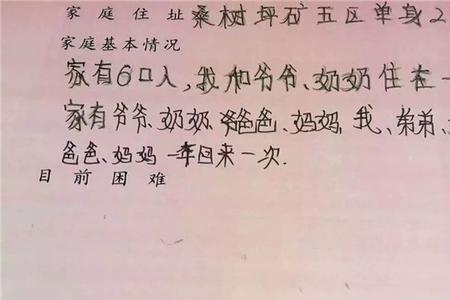 家庭住址 桑树坪矿五区单身2
家庭基本情况
家有6口人,我和爷爷、奶奶住在一
家有爷爷、奶奶、爸爸、妈妈、我、弟弟、
爸爸、妈妈一年回来一次.
目前困难